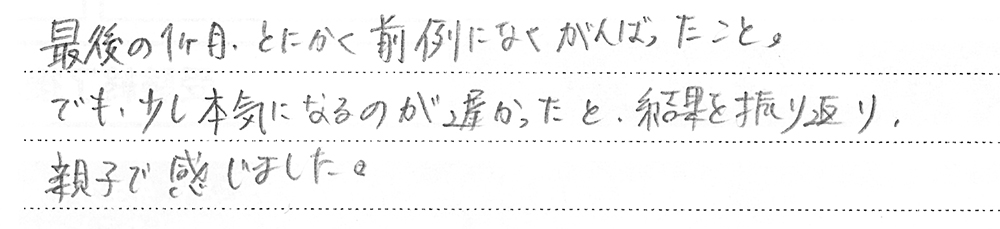 最後の1ヶ月、とにかく前例になくがんばったこと。
でも、少し本気になるのが遅かったと、結果を振り返り、
親子で感じました。